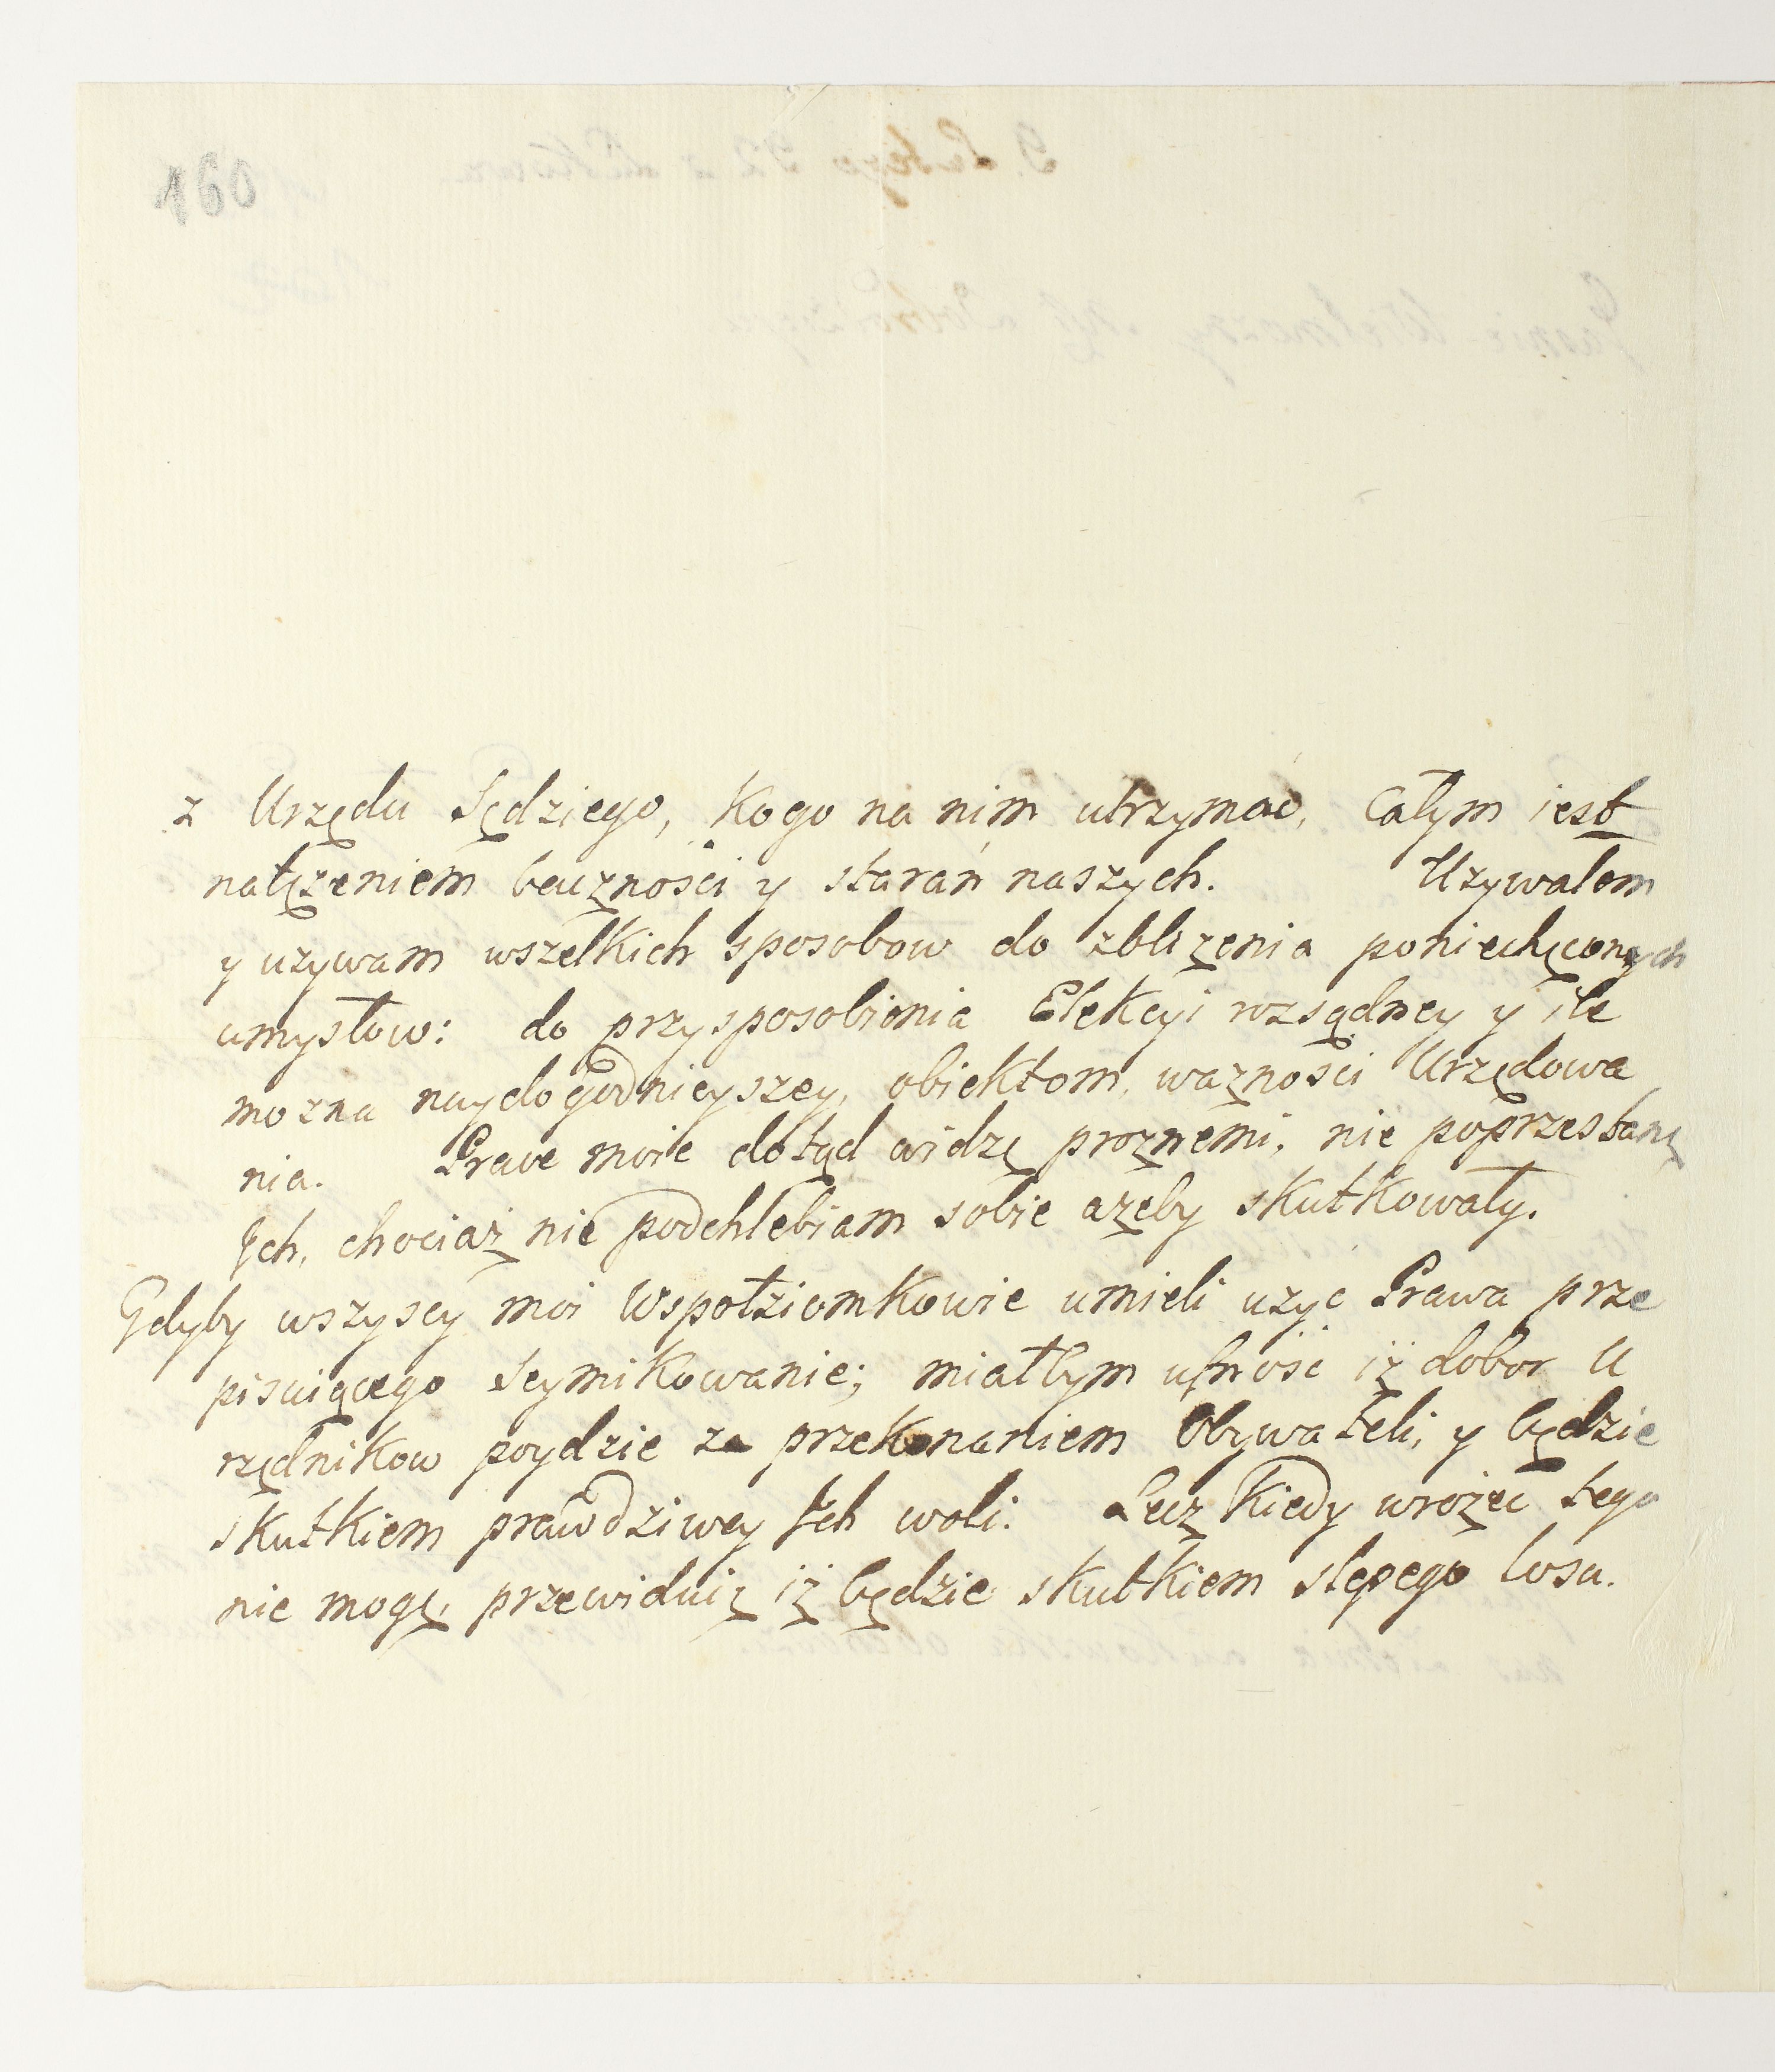 160
z Urzędu Sędziego, Kogo na nim utrzymać, Całym iest
natęzeniem bacznosci y starań naszych. Uzywałem
y uzywam wszelkich sposobow do zblizenia poniechęconych
umysłow: do przysposobienia Elekcyi rozsądney y ile
mozna naydogodnieyszey, obiektom waznosci Urzędowa
nia. Prace moie dotąd widzę proznemi, nie poprzestanę
Ich, chociaż nie podchlebiam sobie azeby skutkowały.
Gdyby wszyscy moi Wspołziomkowie umieli uzyć Prawa prze
pisuiącego Seymikowanie; miałbym ufność iż dobor U
rzędnikow poydzie za przekonaniem Obywateli, y będzie
skutkiem prawdziwey Ich woli. Lecz Kiedy wrożyć tego
nie mogę, przewiduię iż będzie skutkiem slepego losu.